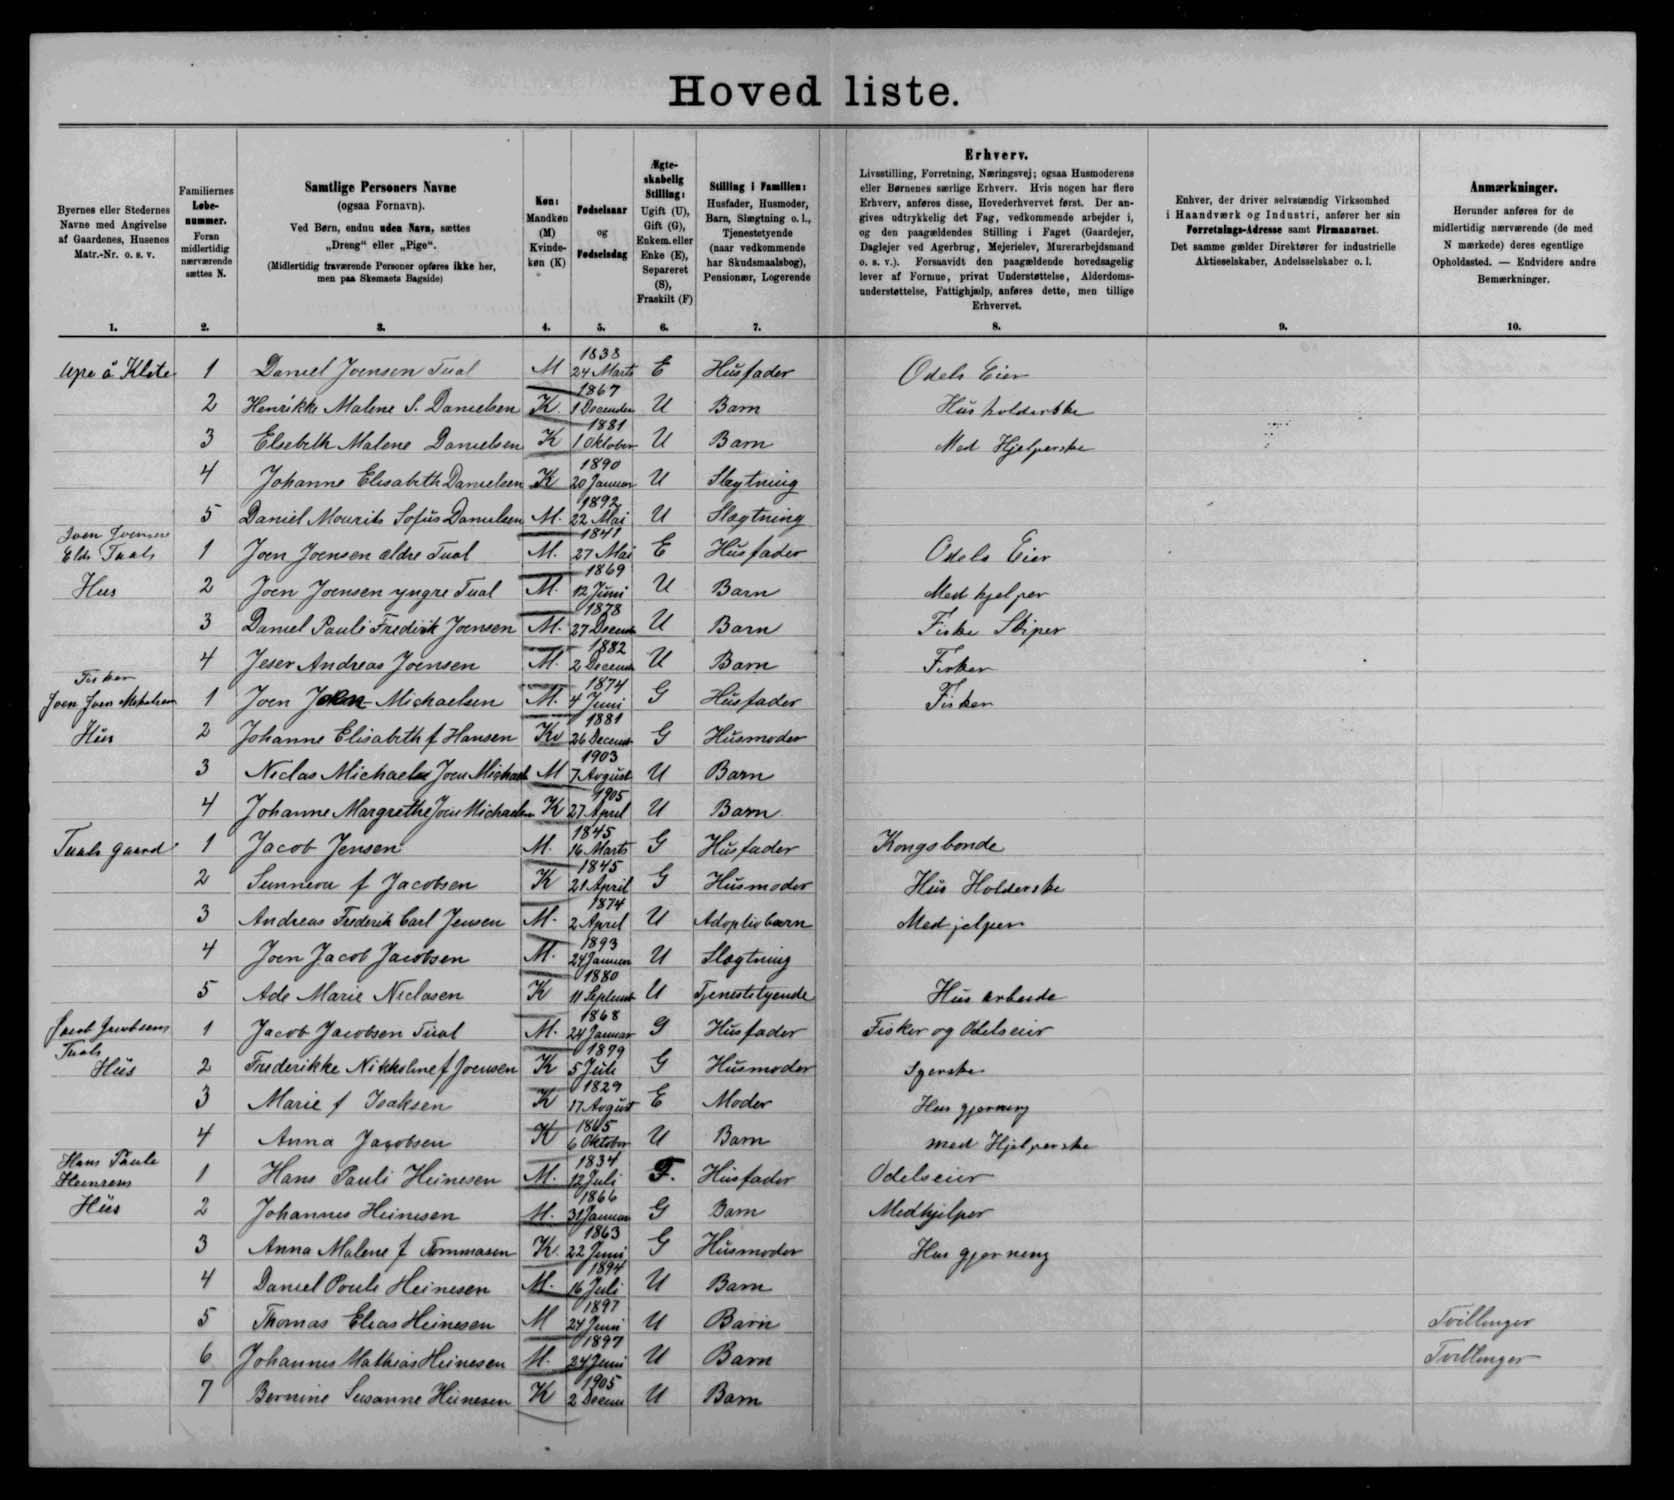 Hoved liste.
Byernes eller Stedernes
Navne med Angivelse
af Gaardenes, Husenes
Matr.-Nr. o. s. v.
1.
Familiernes
Løbe-
nummer.
Foran
midlertidig
nærværende
sættes N.
2.
Samtlige Personers Navne
(ogsaa Fornavn).
Ved Børn, endnu uden Navn, sættes
„Dreng“ eller „Pige“.
(Midlertidig fraværende Personer opføres ikke her,
men paa Skemaets Bagside)
3.
Køn:
Mandkøn
(M)
Kvinde-
køn (K)
4.
Fødselsaar
og
Fødselsdag
5.
Ægte-
skabelig
Stilling:
Ugift (U),
Gift (G),
Enkem. eller
Enke (E),
Separeret
(S),
Fraskilt (F)
6.
Stilling i Familien:
Husfader, Husmoder,
Barn, Slægtning o. l.,
Tjenestetyende
(naar vedkommende
har Skudsmaalsbog),
Pensionær, Logerende
7.
Erhverv.
Livsstilling, Forretning, Næringsvej; ogsaa Husmoderens
eller Børnenes særlige Erhverv. Hvis nogen har flere
Erhverv, anføres disse, Hovederhvervet først. Der an-
gives udtrykkelig det Fag, vedkommende arbejder i,
og den paagældendes Stilling i Faget (Gaardejer,
Daglejer ved Agerbrug, Mejerielev, Murerarbejdsmand
o. s. v.). Forsaavidt den paagældende hovedsagelig
lever af Formue, privat Understøttelse, Alderdoms-
understøttelse, Fattighjælp, anføres dette, men tillige
Erhvervet.
8.
Enhver, der driver selvstændig Virksomhed
i Haandværk og Industri, anfører her sin
Forretnings-Adresse samt Firmanavnet.
Det samme gælder Direktører for industrielle
Aktieselskaber, Andelsselskaber o. l.
9.
Anmærkninger.
Herunder anføres for de
midlertidig nærværende (de med
N mærkede) deres egentlige
Opholdssted. — Endvidere andre
Bemærkninger.
10.
1 Daniel Joensen Tual M 1838 24 Marts E Husfader Odels Eier
2 Henrikke Malene S. Danielsen K. 1867 1 December U Barn Husholderske
3 Elsebeth Malene Danielsen K 1881 1 Oktober U Barn Med Hjelperske
4 Johanne Elisabeth Danielsen K 1890 20 Januar U Slægtning
5 Daniel Mourits Sofus Danielsen M. 1892 22 Mai U Slægtning
Joen Joensens
Eldr Tuals
Hus
1 Joen Joensen ældre Tual M. 1841 27 Mai E Husfader Odels Eier
2 Joen Joensen yngre Tual M. 1869 12 Juni U Barn Medhjelper
3 Daniel Pauli Fredirik Joensen M. 1878 27 Decemb U Barn Fiske Skiper
4 Jeser Andreas Joensen M. 1882 2 Decemb U Barn Fisker
Fisker
Joen Joen Michelsen
Hus
1 Joen Joen- Michaelsen M. 1874 4 Juni G Husfader Fisker
2 Johanne Elisabith f Hansen Kv 1881 26 Decemb G Husmoder
3 Niclas Michael Joen Michael M 1903 7 August U Barn
4 Johanne Margrethe Joen Michaelsen K 1905 27 April U Barn
Tuals gaard
1 Jacob Jensen M. 1845 16 Marts G Husfader Kongsbonde
2 Sunneva f Jacobsen K 1845 21 April G Husmoder Hus Holderske
3 Andreas Frederik Carl Jensen M. 1874 2 April U Adoptivbarn Medjelper
4 Joen Jacob Jacobsen M. 1893 24 Januar U Slægtning
5 Ade Marie Niclasen K 1880 11 Septemb U Tjenestetyende Hus arbeide
Jacob Jacobsens
Tuals
Hus
1 Jacob Jacobsen Tual M. 1868 24 Januar G Husfader Fisker og Odelseier
2 Frederikke Nikkoline f Joensen K 1879 5 Juli G Husmoder Syerske
3 Marie f Isaksen K 1829 17 August E Moder Hus gjerning
4 Anna Jacobsen K 1865 6 Oktober U Barn med Hjelperske
Hans Paule
Heinesens
Hus
1 Hans Pauli Heinesen M. 1834 12 Juli F. Husfader Odelseier
2 Johannes Heinesen M. 1866 31 Januar G Barn Medhjelper
3 Anna Malene f Tommasen K. 1863 22 Juni G Husmoder Hus gjerning
4 Daniel Poule Heinesen M. 1894 16 Juli U Barn
5 Thomas Elias Heinesen M 1897 24 Juni U Barn Tvillinger
6 Johannes Mathias Heinesen M. 1897 24 Juni U Barn Tvillinger
7 Bernine Susanne Heinesen K 1905 2 Decem U Barn